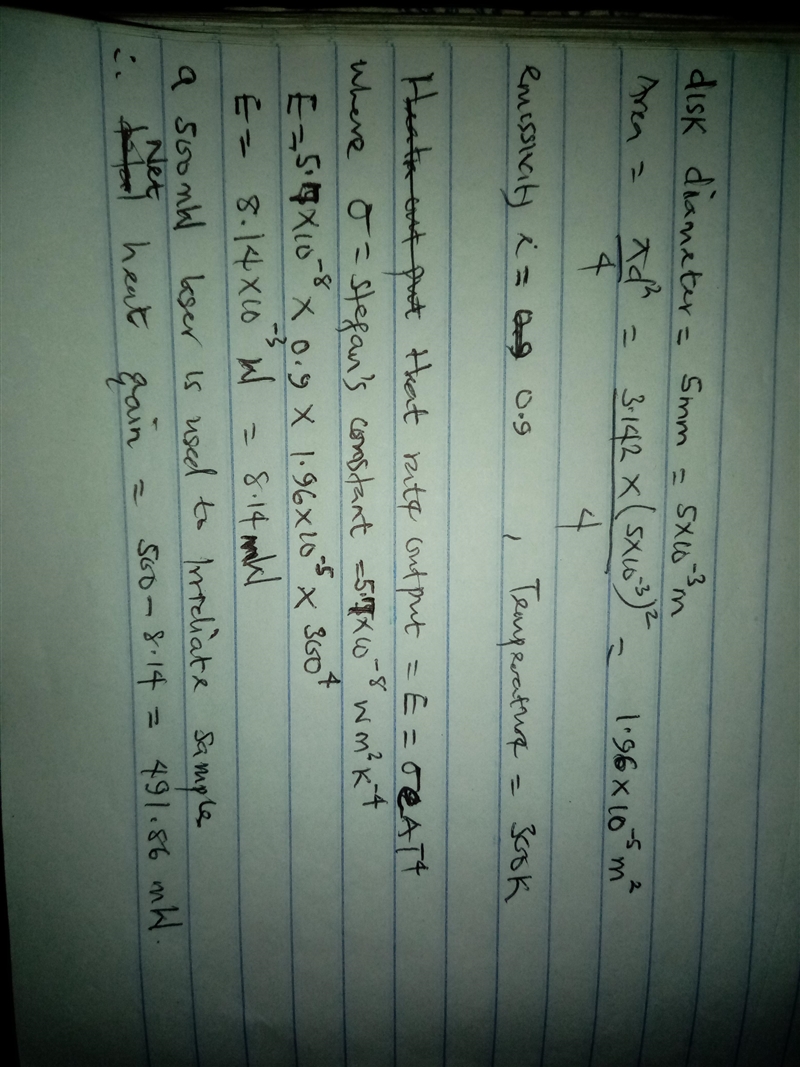 disk diameter = 5mm = 5x10⁻³m
Area = πd²/4 = 3.142 x (5x10⁻³)²/4 = 1.96 x 10⁻⁵ m²
emissivity i = 0.9 , Temperature = 300K
Heat rate output = E = σeAT⁴
where σ = stefan's constant = 5.7x10⁻⁸ Wm²K⁻⁴
E = 5.7x10⁻⁸ x 0.9 x 1.96x10⁻⁵ x 300⁴
E = 8.14x10⁻³ W = 8.14mW
a 500mW laser is used to irradiate sample
∴ Net heat gain = 500 - 8.14 = 491.86 mW.